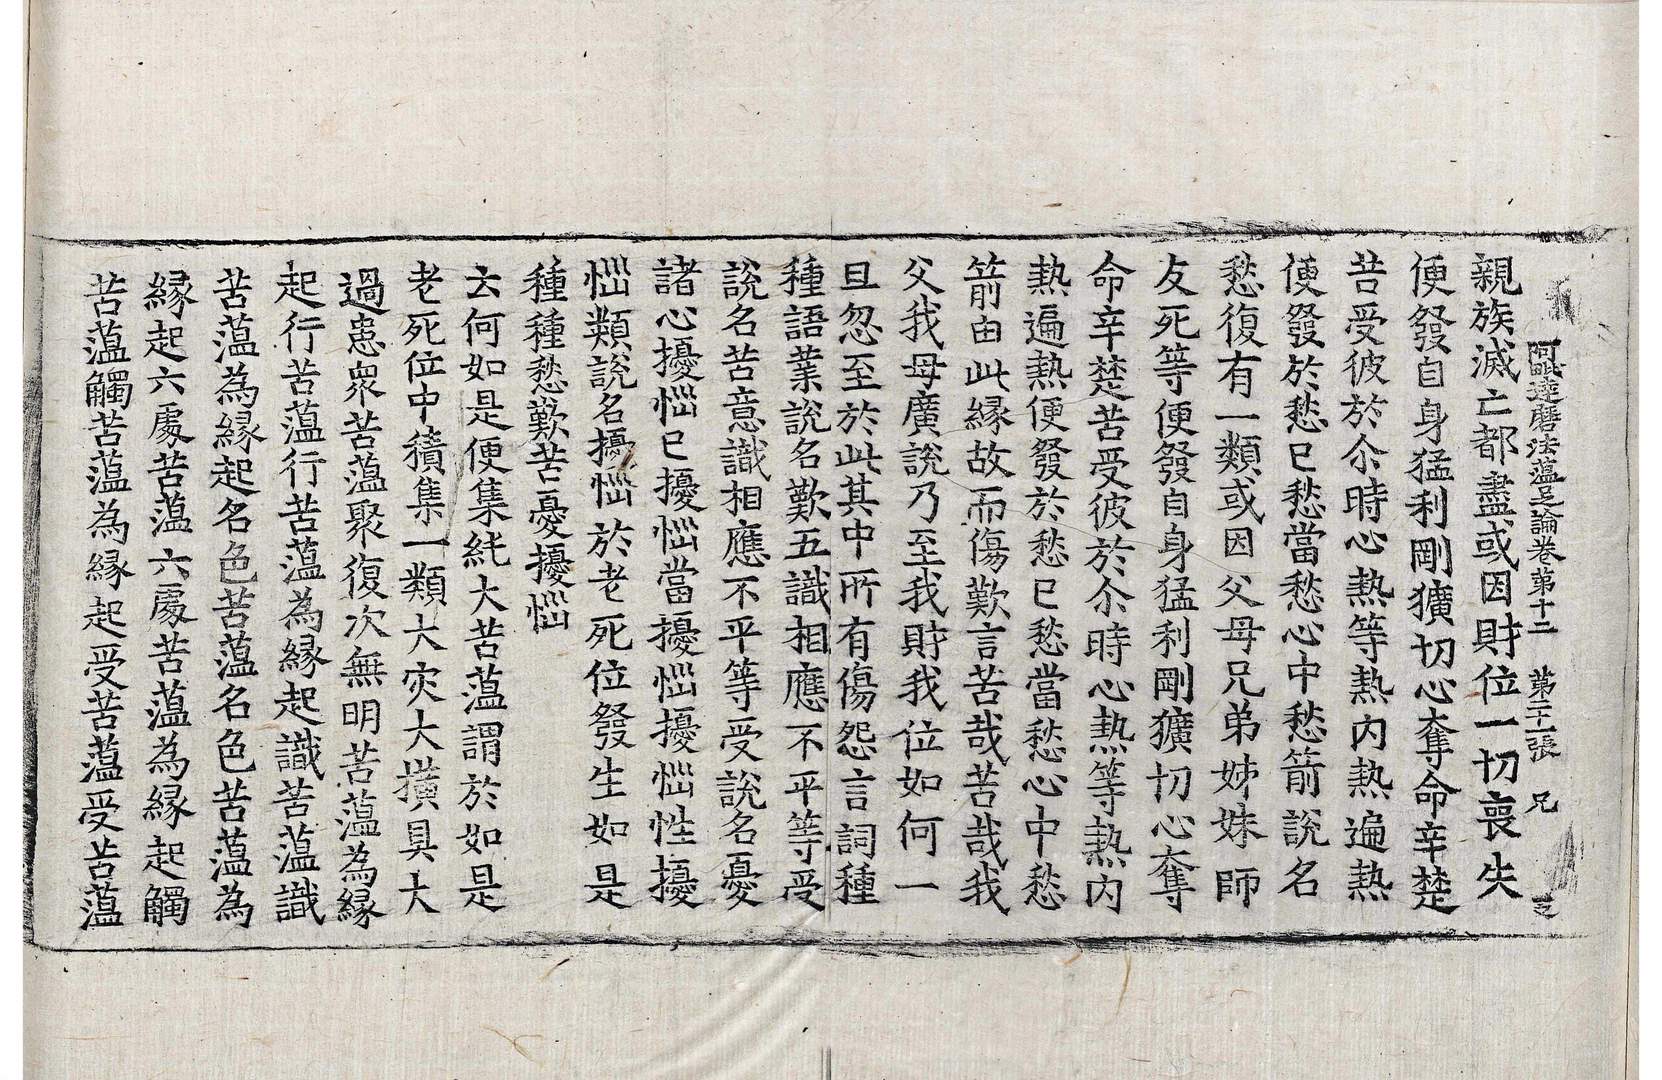 阿毗達磨法蘊足論卷第十二　第二十一張　兄
親族滅亡都盡或因財位一切喪失
便發自身猛利剛獷切心奪命辛楚
苦受彼於尒時心熱等熱內熱遍熱
便發於愁已愁當愁心中愁箭說名
愁復有一類或因父母兄弟姊妹師
友死等便發自身猛利剛獷切心奪
命辛楚苦受彼於尒時心熱等熱內
熱遍熱便發於愁已愁當愁心中愁
箭由此緣故而傷歎言苦哉苦哉我
父我母廣說乃至我財我位如何一
旦忽至於此其中所有傷怨言詞種
種語業說名歎五識相應不平等受
說名苦意識相應不平等受說名憂
諸心擾惱已擾惱當擾惱擾惱性擾
惱類說名擾惱於老死位發生如是
種種愁歎苦憂擾惱
云何如是便集純大苦蘊謂於如是
老死位中積集一類大灾大撗具大
過患衆苦蘊聚復次無明苦蘊為緣
起行苦蘊行苦蘊為緣起識苦蘊識
苦蘊為緣起名色苦蘊名色苦蘊為
緣起六處苦蘊六處苦蘊為緣起觸
苦蘊觸苦蘊為緣起受苦蘊受苦蘊